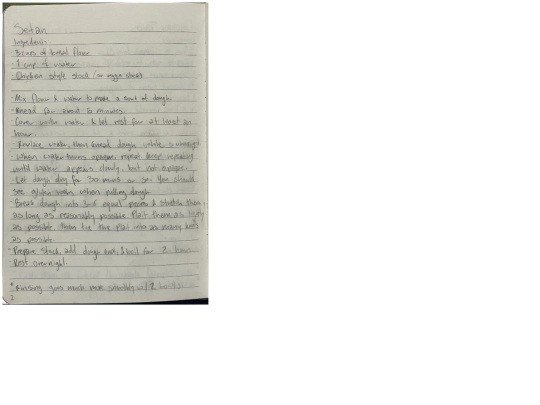 Seitan
Ingredients:
3 cups of bread flour
1 cup of water
Chicken style stock (or veggie stock)
-Mix flour & water to make a sort of dough
-Knead for about 10 minutes.
-Cover with water & let rest for at least an
hour.
-Replace water, then knead dough while submerged
-When water turns opaque, repeat keep repeating
until water appears cloudy, but not opaque.
-Let dough dry for 30 mins or so. You should
see gluten when pulling dough
-Break dough into equal pieces & stretch them
as long as reasonably possible. Plait them as tightly
as possible, then tie the plait into as many knots
as possible
-Prepare stock, add dough knots, & boil for
Rest overnight
*Kneading goes much more smoothly w/ 2
2